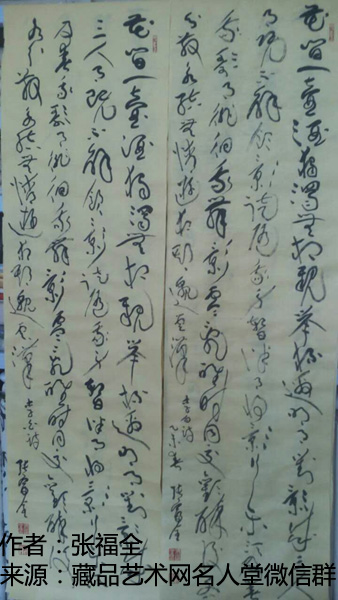 花間一壺酒獨酌無相親舉杯邀明月對影成三
人月既不解飲影徒隨我身暫伴月將影行樂須及春
我歌月徘徊我舞影零亂醒時同交歡醉後各
分散永結無情遊相期邈雲漢 李白詩
花間一壺酒獨酌無相親舉杯邀明月對影成
三人月既不解飲影徒隨我身暫伴月將影行樂須
及春我歌月徘徊我舞影零亂醒時同交歡醉後
各分散永結無情遊相期邈雲漢 李白詩
作者：张福全
来源：藏品艺术网名人堂微信群